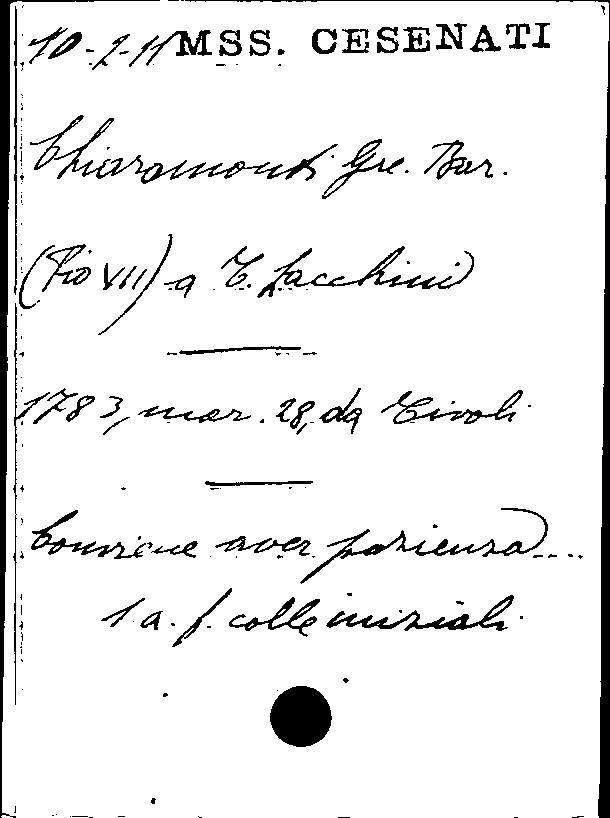 10-2-11 MSS. CESENATI
Chiaramonti Gre. Bar.
(Pio VII) a T. Zacchini
1783, mar. 28, da Tivoli
Conviene aver pazienza....
1 a. f. colle iniziali